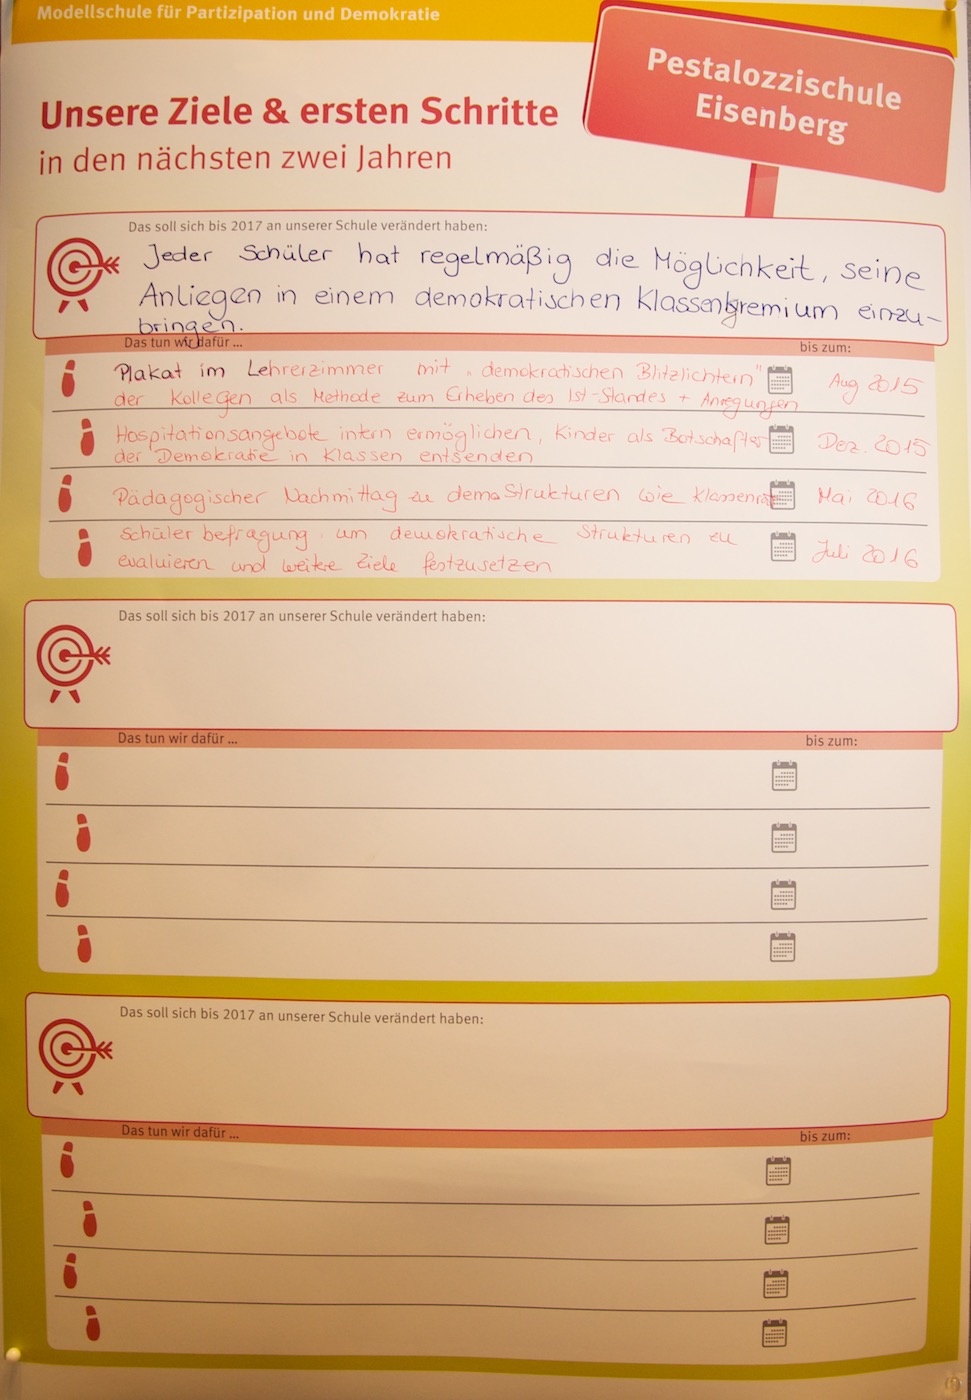 Modellschule für Partizipation und Demokratie
Pestalozzischule
Eisenberg
Unsere Ziele & ersten Schritte
in den nächsten zwei Jahren
Das soll sich bis 2017 an unserer Schule verändert haben:
Jeder Schüler hat regelmäßig die Möglichkeit, seine
Anliegen in einem demokratischen Klassengremium einzu-
bringen.
Das tun wir dafür ...
bis zum:
Plakat im Lehrerzimmer mit „demokratischen Blitzlichtern"
der Kollegen als Methode zum Erheben des Ist-Standes + Anregungen
Aug 2015
Hospitationsangebote intern ermöglichen, Kinder als Botschafter
der Demokratie in Klassen entsenden
Dez. 2015
Pädagogischer Nachmittag zu demo Strukturen wie Klassenrat
Mai 2016
Schülerbefragung, um demokratische Strukturen zu
evaluieren und weitere Ziele festzusetzen
Juli 2016
Das soll sich bis 2017 an unserer Schule verändert haben:
Das tun wir dafür ...
bis zum:
Das soll sich bis 2017 an unserer Schule verändert haben:
Das tun wir dafür ...
bis zum: